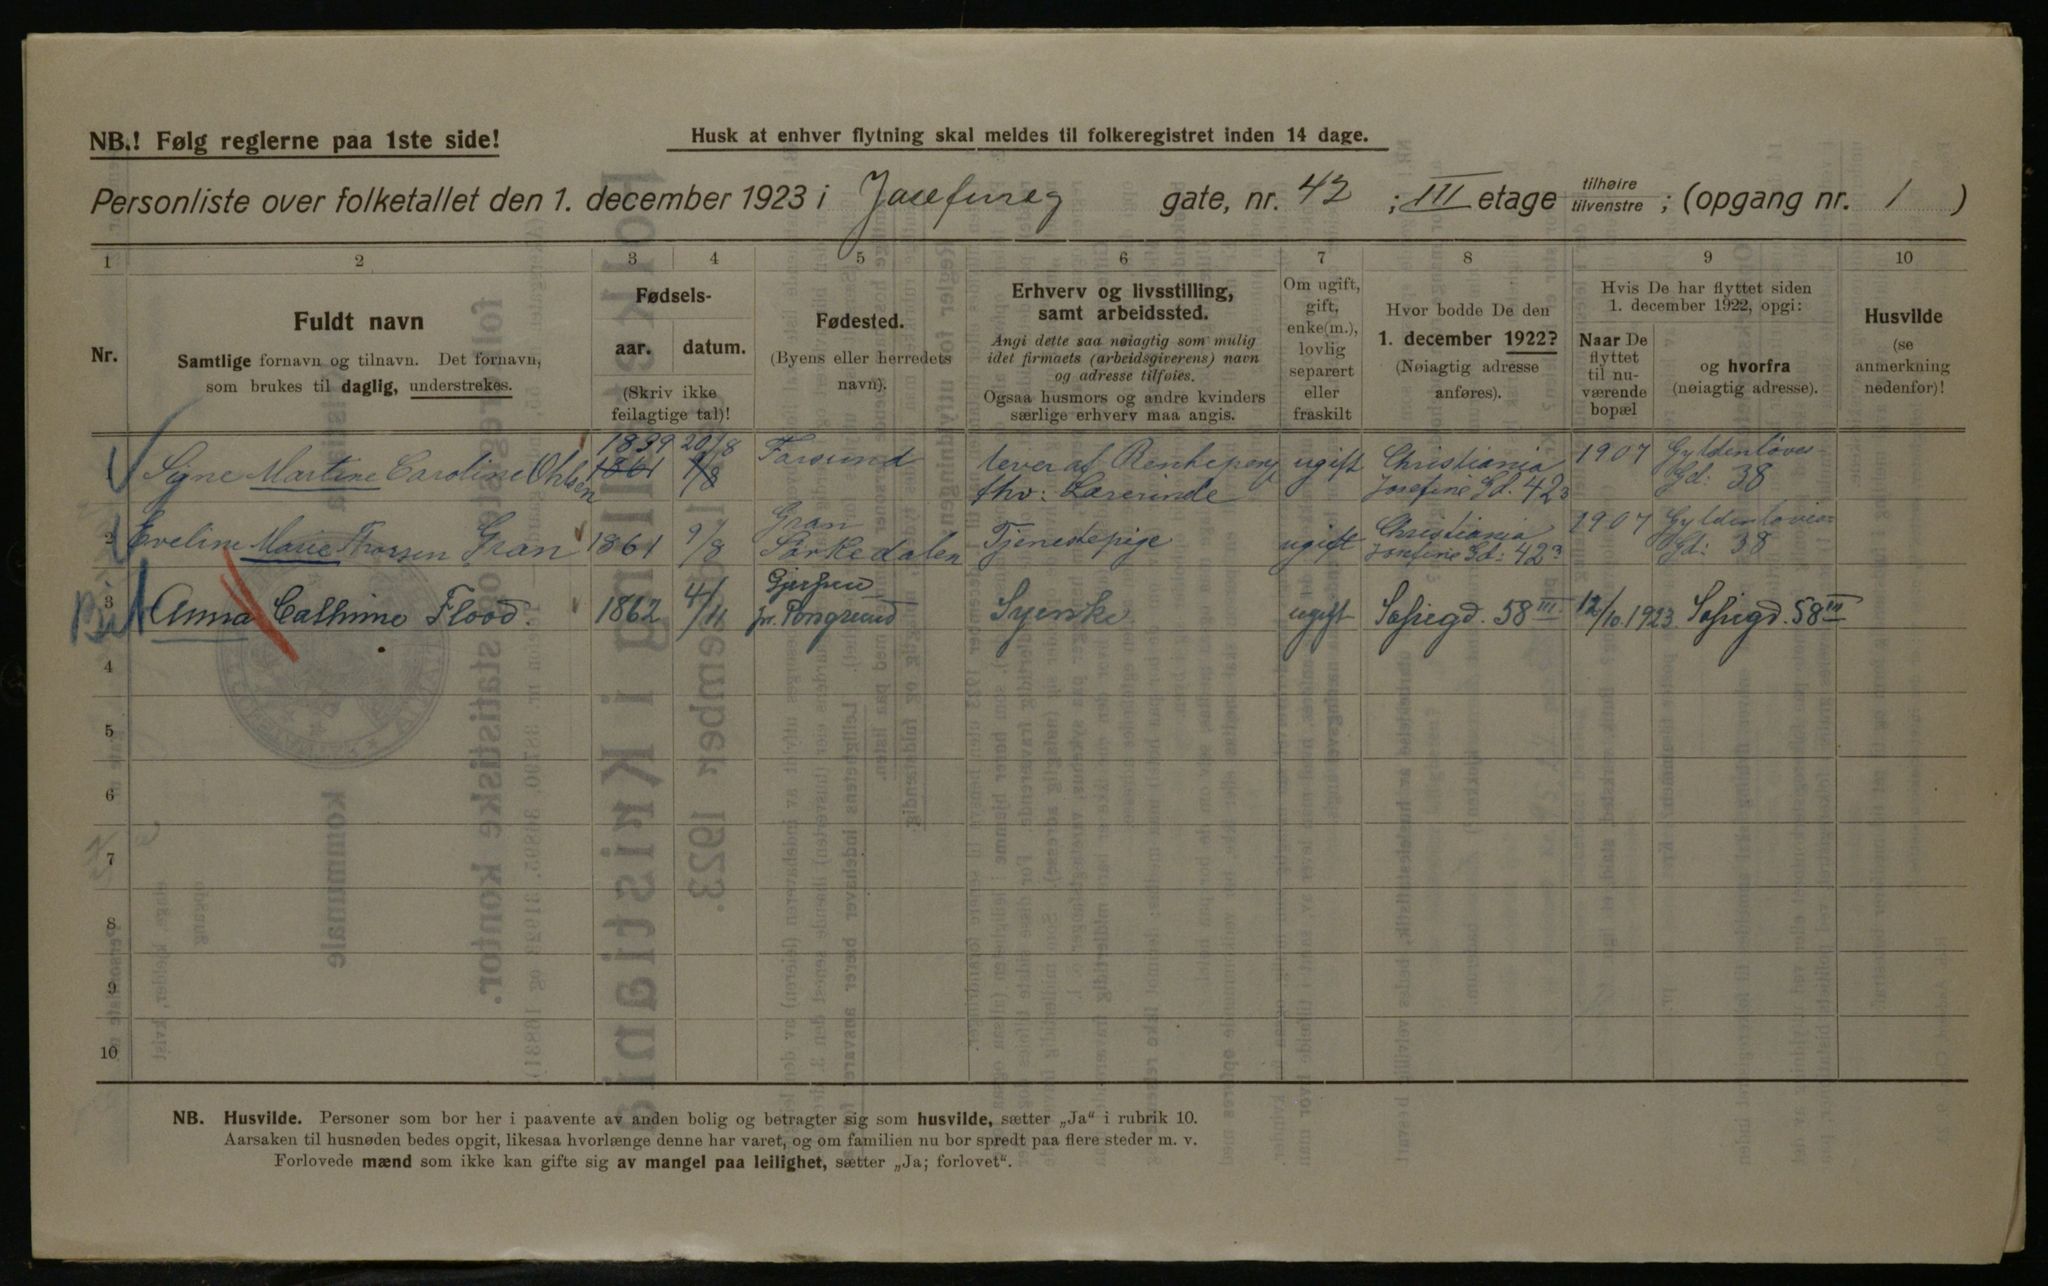 NB.! Følg reglerne paa 1ste side!
Husk at enhver flytning skal meldes til folkeregistret inden 14 dage.
Personliste over folketallet den 1. december 1923 i Josefineg gate, nr. 42 ; III etage tilhøire tilvenstre ; (opgang nr. 1 )
1 2 3 4 5 6 7 8 9 10
Nr.
Fuldt navn
Samtlige fornavn og tilnavn. Det fornavn,
som brukes til daglig, understrekes.
Fødsels-
aar. datum.
(Skriv ikke
feilagtige tal)!
Fødested.
(Byens eller herredets
navn).
Erhverv og livsstilling,
samt arbeidssted.
Angi dette saa nøiagtig som mulig
idet firmaets (arbeidsgiverens) navn
og adresse tilføies.
Ogsaa husmors og andre kvinders
særlige erhverv maa angis.
Om ugift,
gift,
enke(m.),
lovlig
separert
eller
fraskilt
Hvor bodde De den
1. december 1922?
(Nøiagtig adresse
anføres).
Hvis De har flyttet siden
1. december 1922, opgi:
Naar De
flyttet
til nu-
værende
bopæl
og hvorfra
(nøiagtig adresse).
Husvilde
(se
anmerkning
nedenfor)!
Signe Martine Caroline Ohlsen 1861 1/8 Farsund lever af ugift Christiania 1907 Gyldenløves
1899 20/8 fhv: Lærerinde Josefine Gd. 42 3 Gd: 38
2 Eveline Marie Thorsen Gran 1861 9/8 Gran Tjenestepige ugift Christiania 1907 Gyldenløves
Sørkedalen Josefine Gd: 42 3 Gd: 38
3 Anna Cathrine Flood. 1862 4/11 Gjerpen ugift Sofiegd. 58 III 12/10 1923 Sofiegd. 58 III
pr. Porsgrund
4
5
6
7
8
9
10
NB. Husvilde. Personer som bor her i paavente av anden bolig og betragter sig som husvilde, sætter „Ja“ i rubrik 10.
Aarsaken til husnøden bedes opgit, likesaa hvorlænge denne har varet, og om familien nu bor spredt paa flere steder m. v.
Forlovede mænd som ikke kan gifte sig av mangel paa leilighet, sætter „Ja; forlovet“.